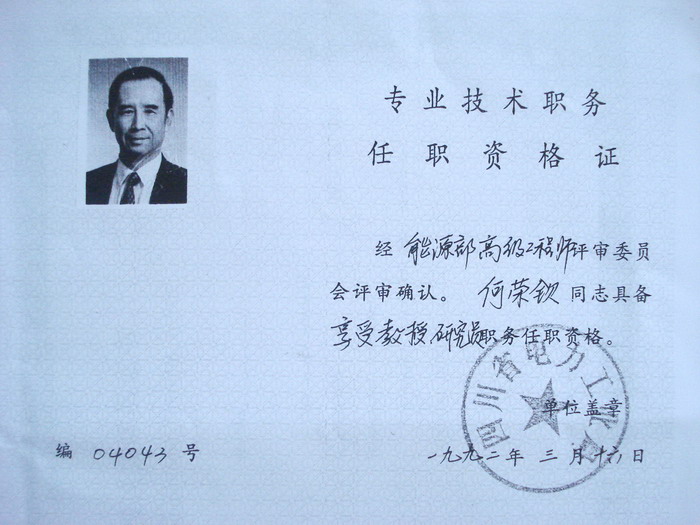 专业技术职务
任职资格证
经 能源部高级工程师评审委员
会评审确认。 何荣钦 同志具备
享受教授研究员职务任职资格。
四川省电力工业局
单位盖章
编 04043 号
一九九二年 三 月 十六 日